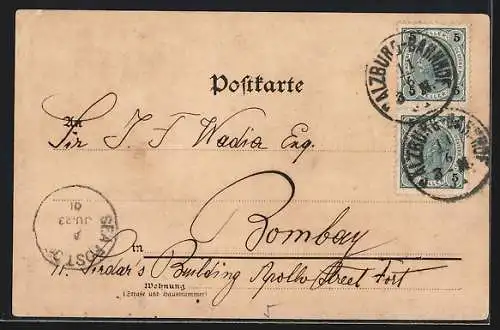 Postkarte
An
Sir J F Wadia Esq.
Bombay
in
11. Sirdar's Building Apollo Street Fort
Wohnung
(Straße und Hausnummer)
SALZBURG-BAHNHOF
SALZBURG-BAHNHOF
SEA POST
JU 23
01
5 5
5 5
5
5